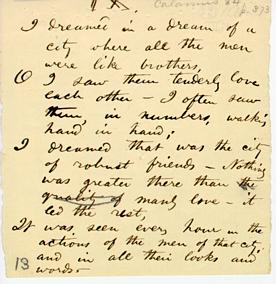 Calamus 34
p. 373
I dreamed in a dream of a
city where all the men
were like brothers,
O I saw them tenderly love
each other — I often saw
them, in numbers, walking
hand in hand;
I dreamed that was the city
of robust friends — Nothing
was greater there than
quality of manly love — it
led the rest,
It was seen every hour in the
actions of the men of that city,
and in all their looks and
words.—
13